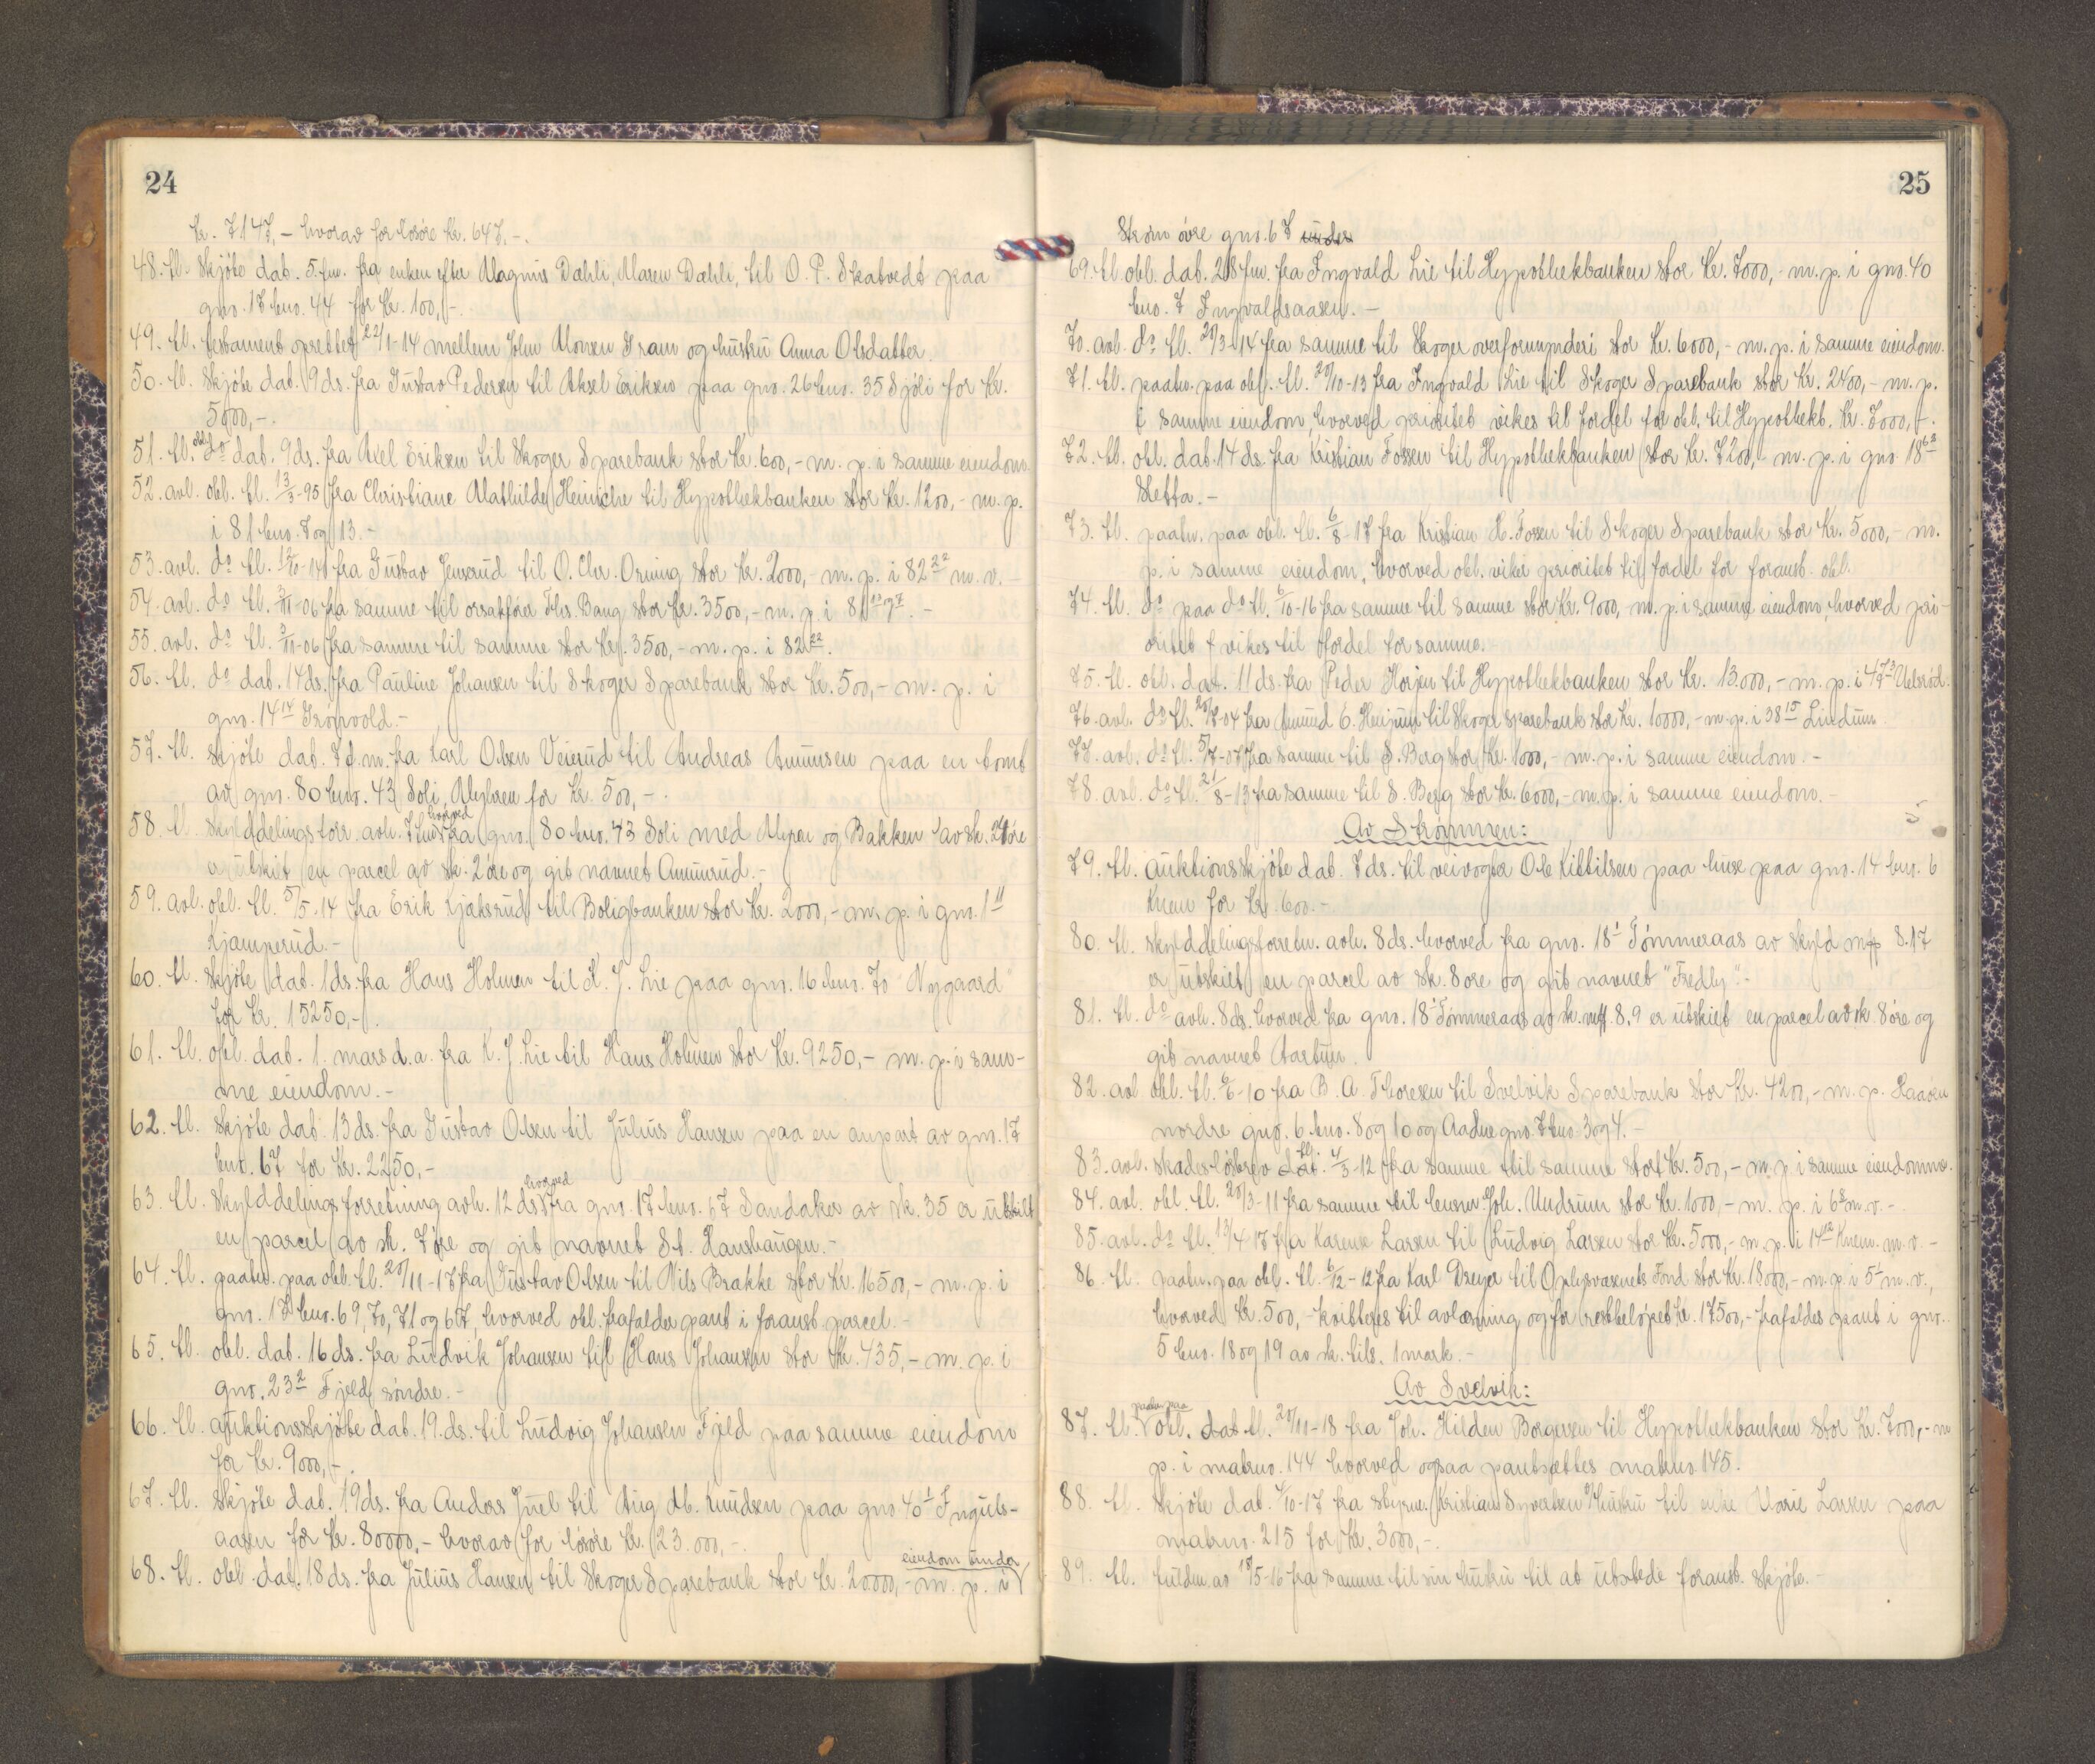 24
kr. 7147,- hvorav for løsøre kr. 647,-.
48. tl. Skjöte dat. 5. fm. fra enken efter Magnus Dæhli, Maren Dæhli, til O. P. Skatvedt paa
gno. 17 bno. 44 for kr. 100,-
49. tl. testament oprettet 22/1-14 mellem John Monsen Fram og hustru Anna Olsdatter.
50. tl. Skjöte dat. 9 ds. fra Gustav Pedersen til Aksel Eriksen paa gno. 26 bno. 35 Sjöli for kr.
5000,-.
51. tl. obl. do dat. 9 ds. fra Axel Eriksen til Skoger Sparebank stor kr. 600,- m. p. i samme eiendom
52. avl. obl. tl. 13/3-95 fra Christiane Mathilde Heinsche til Hypothekbanken stor kr. 1200,- m. p.
i 81 bno. 7 og 13.-
53. avl. do tl. 12/10-14 fra Gustav Jenserud til O. Chr. Orning stor kr. 2000,- m. p. i 82 22 m. v.-
54. avl. do tl. 2/11-06 fra samme til orsakförer Ths. Bang stor kr. 3500,- m. p. i 81 .-
55. avl. do tl. 2/11-06 fra samme til samme stor kr. 3500,- m. p. i 82 22.
56. tl. do dat. 14 ds. fra Pauline Johansen til Skoger Sparebank stor kr. 500,- m. p. i
gno. 14 14 Grönvold.-
57. tl. Skjöte dat. 7 d.m. fra Karl Olsen Veierud til Andreas Amunsen paa en tomt
av gno. 80 bno. 43 Soli, Myhren for kr. 500,-.
58. tl. Skylddelingsforr. avh. 7 hvorved fra gno. 80 bno. 43 Soli med Myren og Bakken av sk. 24 öre
er utskilt en parcel av sk. 2 öre og git navnet Amunrud.-
59. avl. obl. tl. 5/5-14 fra Erik Kjaksrud til Boligbanken stor kr. 2000,- m. p. i gno. 1 11
Kjamperud.-
60. tl. Skjöte dat. 1 ds. fra Hans Holmen til K. J. Lie paa gno. 16 bno. 70 "Nygaard"
for kr. 15250,-.
61. tl. obl. dat. 1. mars d.a. fra K. J. Lie til Hans Holmen stor kr. 9250,- m. p. i sam-
me eiendom.-
62. tl. Skjöte dat. 13 ds. fra Gustav Olsen til Julius Hansen paa en anpart av gno. 17
bno. 67 for kr. 2250,-
63. tl. Skylddelingsforretning avh. 12 ds hvorved fra gno. 17 bno. 67 Sandaker av sk. 35 er utskilt
en parcel av sk. 7 øre og git navnet St. Hanshaugen.-
64. tl. paatn. paa obl. tl. 20/11-17 fra Gustav Olsen til Nils Brakke stor kr. 16500,- m. p. i
gno. 17 bno. 69, 70, 71 og 67, hvorved obl. frafalder pant i foranst. parcel.-
65. tl. obl. dat. 16 ds. fra Ludvik Johansen til Hans Johansen stor kr. 435,- m. p. i
gno. 23 2 Fjeld söndre.-
66. tl. auktionsskjöte dat. 19. ds. til Ludvig Johansen Fjeld paa samme eiendom
for kr. 9000,-.
67. tl. Skjöte dat. 19 ds. fra Anders Juel til Aug. M. Knudsen paa gno 40 1 Inguls-
aasen for kr. 80000,- hvorav for lösöre kr. 23.000,-.
68. tl. obl. dat. 18 ds. fra Julius Hansen til Skoger Sparebank stor kr. 20000,- m. p. i eiendom under
25
Strøm övre gno. 67 under
69. tl. obl. dat. 28 fm. fra Ingvald Lie til Hypothekbanken stor kr. 7000,- m. p. i gno. 40
bno. 7 Ingvaldsaasen.-
70. avl. do tl. 20/3-14 fra samme til Skoger overformynderi stor kr. 6000,- m. p. i samme eiendom.
71. tl. paatn. paa obl. tl. 20/10-13 fra Ingvald Lie til Skoger Sparebank stor kr. 2400,- m. p.
i samme eiendom, hvorved prioritet vikes til fordel for obl. til Hypothekb. kr. 7000,-.
72. tl. obl. dat. 14 ds. fra Kristian Fossen til Hypothekbanken stor kr. 7200,- m. p. i gno. 18 63
Sletta.-
73. tl. paatn. paa obl. tl. 6/8-17 fra Kristian H. Fossen til Skoger Sparebank stor kr. 5000,- m.
p. i samme eiendom, hvorved obl. viker prioritet til fordel for foranst. obl.
74. tl. do paa do tl. 6/10-16 fra samme til samme stor kr. 9000,- m. p. i samme eiendom, hvorved pri-
oritet vikes til fordel for samme.
75. tl. obl. dat. 11 ds. fra Peder Horjen til Hypothekbanken stor kr. 13.000,- m. p. i 47 3 Ulveröd.
76. avl. do tl. 20/8-04 fra Amund O. Henjum til Skoger sparebank stor kr. 10000,- m. p. i 38 15 Lindum
77. avl. do tl. 5/7-07 fra samme til S. Berg stor kr. 1000,- m. p. i samme eiendom.-
78. avl. do tl. 21/8-13 fra samme til S. Berg stor kr. 6000,- m. p. i samme eiendom.-
Av Strømmen:
79. tl. auktionsskjöte dat. 7 ds. til veivogter Ole Kittilsen paa huse paa gno. 14 bno. 6
Knem for kr. 600.-
80. tl. skylddelingsforretn. avh. 8 ds. hvorved fra gno. 18 1 Tömmeraas av skyld mk 8.17
er utskilt en parcel av sk. 8 øre og git navnet "Fredly".-
81. tl. do avh. 8 ds. hvorved fra gno. 18 1 Tömmeraas av sk. mk 8.9 er utskilt en parcel av sk 8 öre og
git navnet Aartun.
82. avl. obl. tl. 6/6-10 fra B. A. Thoresen til Svelvik Sparebank stor kr. 4200,- m. p. Haasen
nordre gno. 6 bno. 8 og 10 og Aadne gno. 7 bno 3 og 4.-
83. avl. skadeslösbrev dat. tl. 4/3-12 fra samme til samme stort kr. 500,- m. p. i samme eiendomme.
84. avl. obl. tl. 20/3-11 fra samme til Joh. Undrum stor kr. 1000,- m. p. i 6 8 m. v.-
85. avl. do tl. 13/4-17 fra Karense Larsen til Ludvig Larsen stor kr. 5000,- m. p. i 14 12 Knem m. v.-
86. tl. paatn. paa obl. tl. 6/12-12 fra Karl Dreyer til Oplysvæsenets Fond stor kr. 18000,- m. p. i 5 1 m. v.,
hvorved kr. 500,- kvitteres til avlæsning og for restbelöpet kr. 17500,- frafaldes pant i gno.
5 bno. 18 og 19 av sk. tils. 1 mark.-
Av Svelvik:
87. tl. paatn. paa obl. dat tl. 20/11-18 fra Joh. Hilden Borgersen til Hypothekbanken stor kr. 7000,- m
p. i matrno. 144 hvorved ogsaa pantsættes matrno. 145.
88. tl. Skjöte dat. 4/10-17 fra styrm. Kristian Syvertsen hustru til enke Marie Larsen paa
matrno. 215 for kr. 3000,-.
89. tl. fuldm. av 18/5-16 fra samme til sin hustru til at utstede foranst. skjöte.-